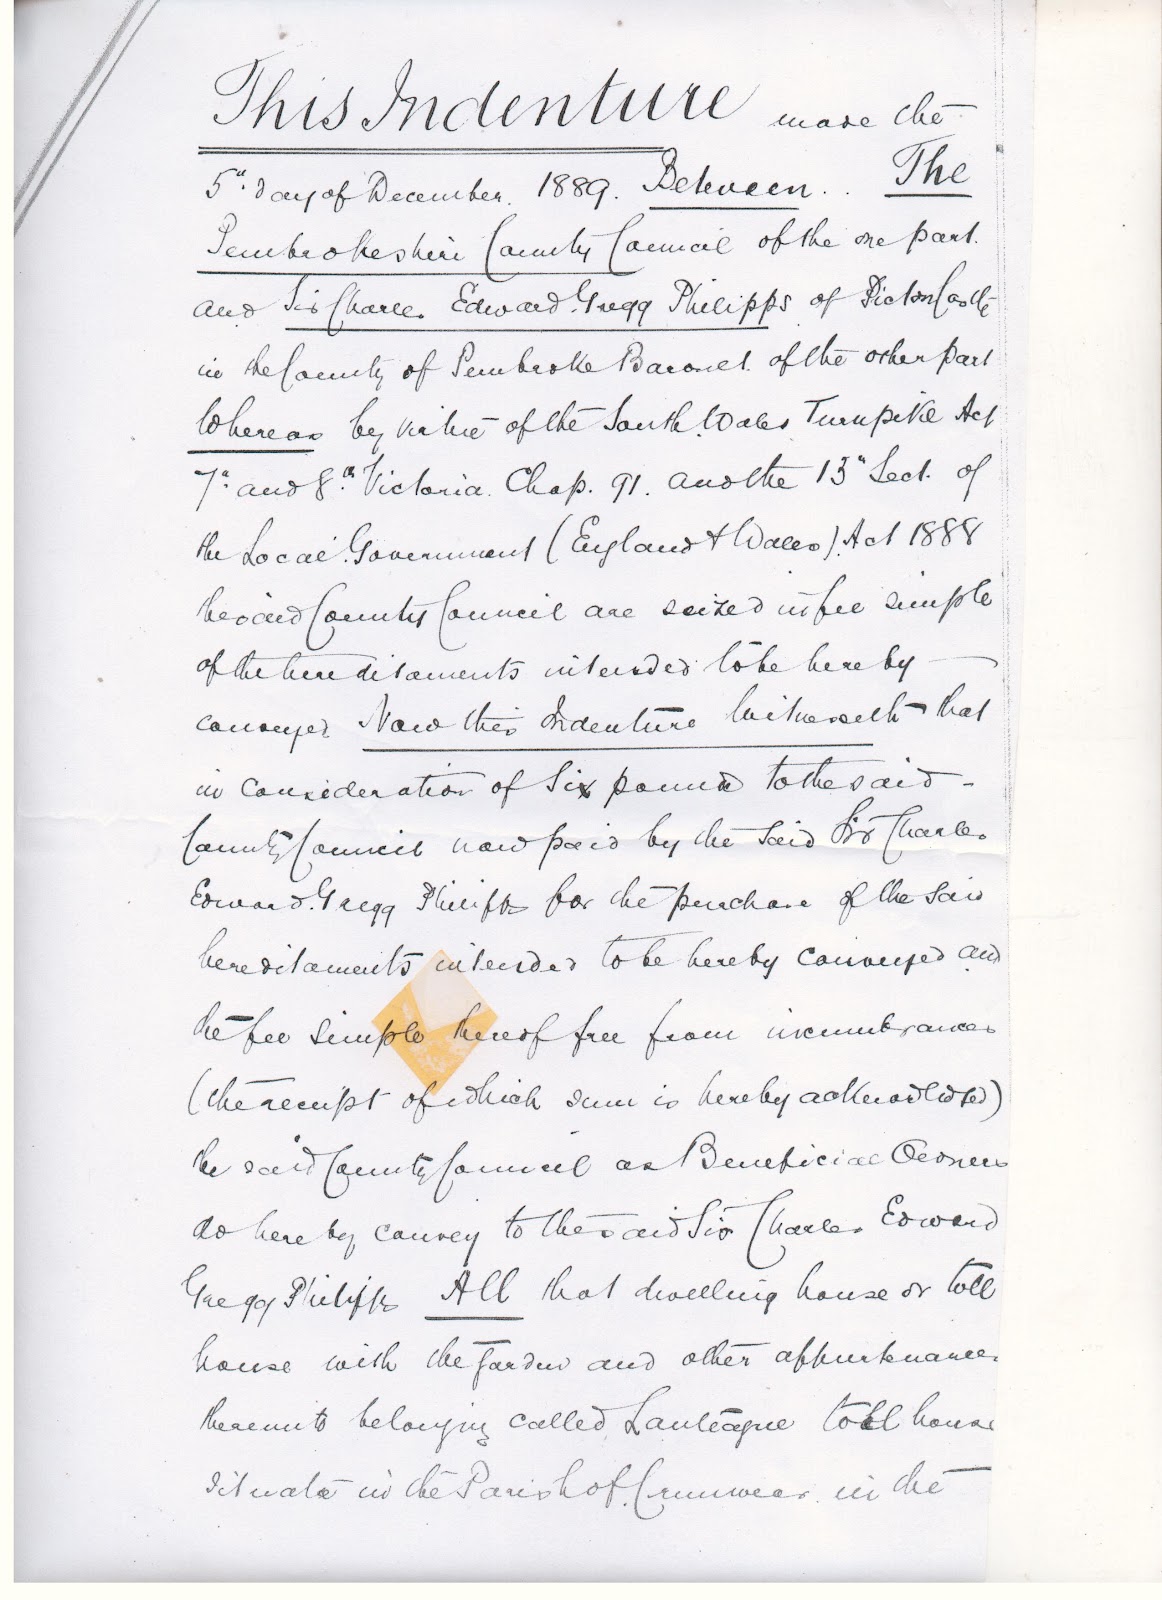 This Indenture made the
5th day of December 1889. Between.. The
Pembrokeshire County Council of the one part.
and Sir Charles Edward Gregg Philipps of Picton Castle
in the County of Pembroke Baronet of the other part
Whereas by virtue of the South Wales Turnpike Act
7th and 8th Victoria. Chap. 91. and the 13th Sect. of
the Local Government (England & Wales) Act 1888
the said County Council are seized in fee simple
of the hereditaments intended to be hereby
conveyed Now this Indenture Witnesseth that
in consideration of Six pounds to the said
County Council now paid by the said Sir Charles
Edward Gregg Philipps for the purchase of the said
hereditaments intended to be hereby conveyed and
the fee simple thereof free from incumbrances
(the receipt of which sum is hereby acknowledged)
the said County Council as Beneficial Owners
do hereby convey to the said Sir Charles Edward
Gregg Philipps All that dwelling house or toll
house with the garden and other appurtenances
thereunto belonging called Lanteague toll house
situate in the Parish of Crunwear in the